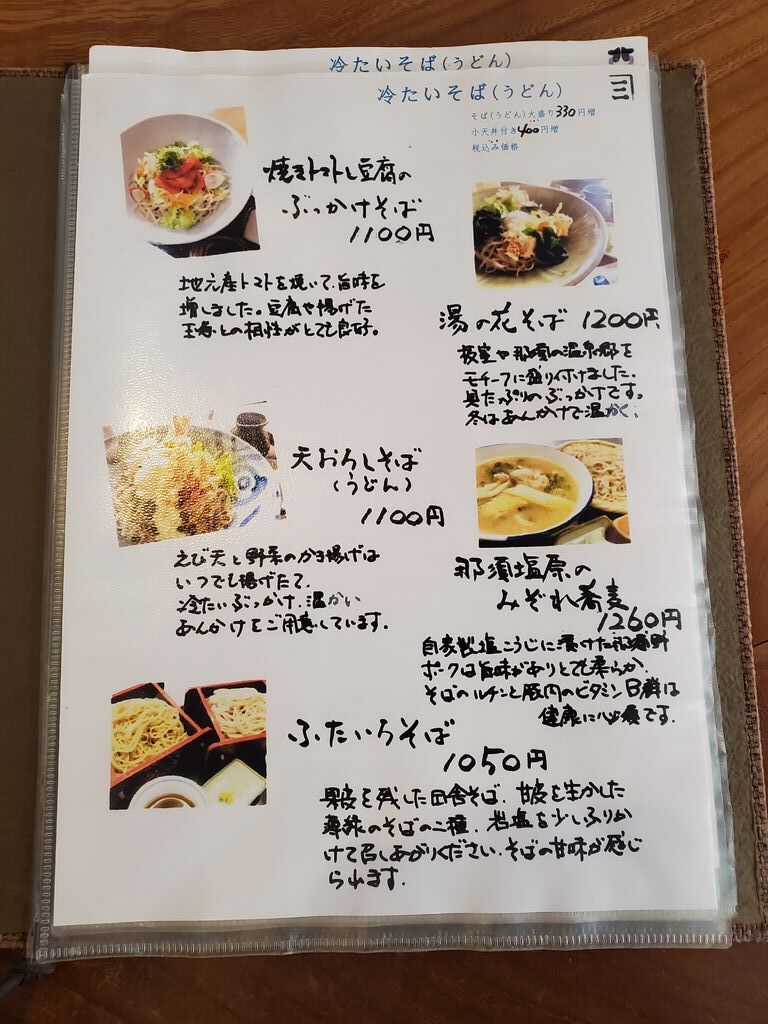 冷たいそば(うどん)
冷たいそば(うどん)
北
司
そば(うどん)大盛り330円増
小天丼付き400円増
税込み価格
焼きトマトと豆腐の
ぶっかけそば
1100円
地元産トマトを焼いて、旨味を
増しました。豆腐や揚げた
との相性がとても良好。
湯の花そば 1200円
板室や那須の温泉郷を
モチーフに盛り付けました。
具たっぷりのぶっかけです。
冬はあんかけで温かく。
天おろしそば
(うどん)
1100円
えび天と野菜のかき揚げは
いつでも揚げたて。
冷たいぶっかけ、温かい
あんかけをご用意しています。
那須塩原の
みぞれ蕎麦
1260円
自家製塩こうじに漬けた那須野
ポークは旨味がありとても柔らか。
そばのルチンと豚肉のビタミンB群は
健康に必須です。
ふたいろそば
1050円
果皮を残した田舎そば、甘皮を生かした
のそばの二種。岩塩を少しふりか
けて召しあがりください。そばの甘味が感じ
られます。